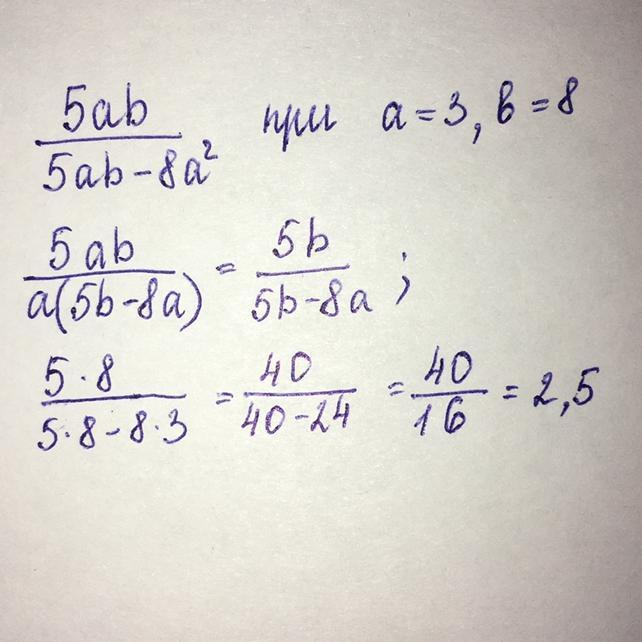 5ab/(5ab-8a²) при a=3, b=8
5ab/(a(5b-8a)) = 5b/(5b-8a) ;
5·8/(5·8-8·3) = 40/(40-24) = 40/16 = 2,5